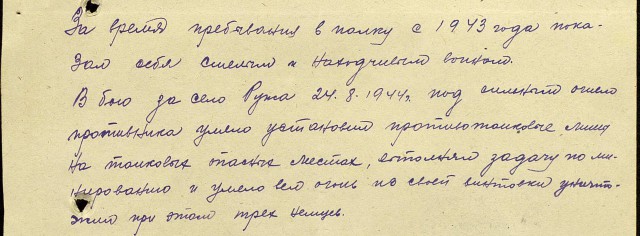 За время пребывания в полку с 1943 года пока-
зал себя смелым и находчивым воином.
В бою за село Ружа 24.8.1944г. под сильным огнем
противника умело установил противотанковые мины
на танковых опасных местах, выполняя задачу по ми-
нированию и умело вел огонь из своей винтовки уничто-
жил при этом трех немцев.